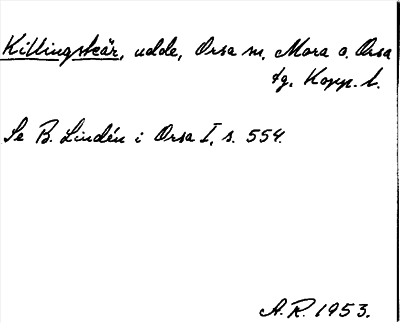 Killingskär, udde, Orsa sn, Mora o. Orsa
tg, Kopp. l.
Se B. Lindén i Orsa I, s. 554.
A.R. 1953.